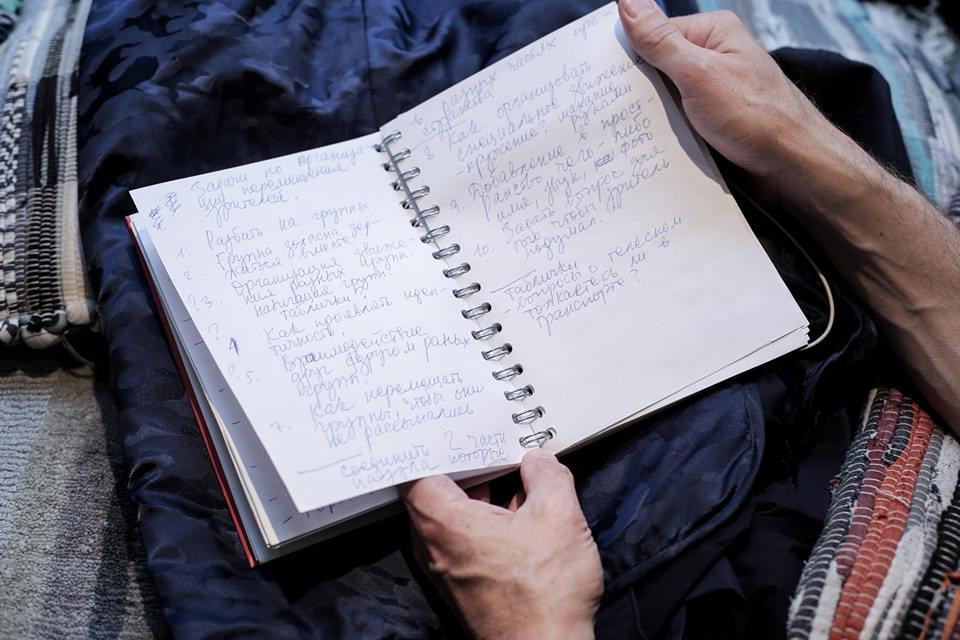 Задачи по организа-
ции перемещения
зрителей.
1. Разбить на группы
2. Группа должна дер-
жаться вместе
? 3. Организация движе-
ния разных групп.
Навигация групп
таблички
? 4 Как проявлять иден-
тичность.
? 5. Взаимодействие
друг с другом разных
групп.
7. Как перемещать
группы, чтобы они
не рассыпались
соединить 2 части
пазла которые
в разных частях про-
странства
8 Как организовать
специальное движение
кружение? машину
- кружение группами
9. Добавление в прост-
ранство чего-либо
имя, звук, фото
10. Задать вопрос для
того чтобы зритель
подумал.
- таблички
вопросы о телесном
толкаетесь ли в
транспорте?